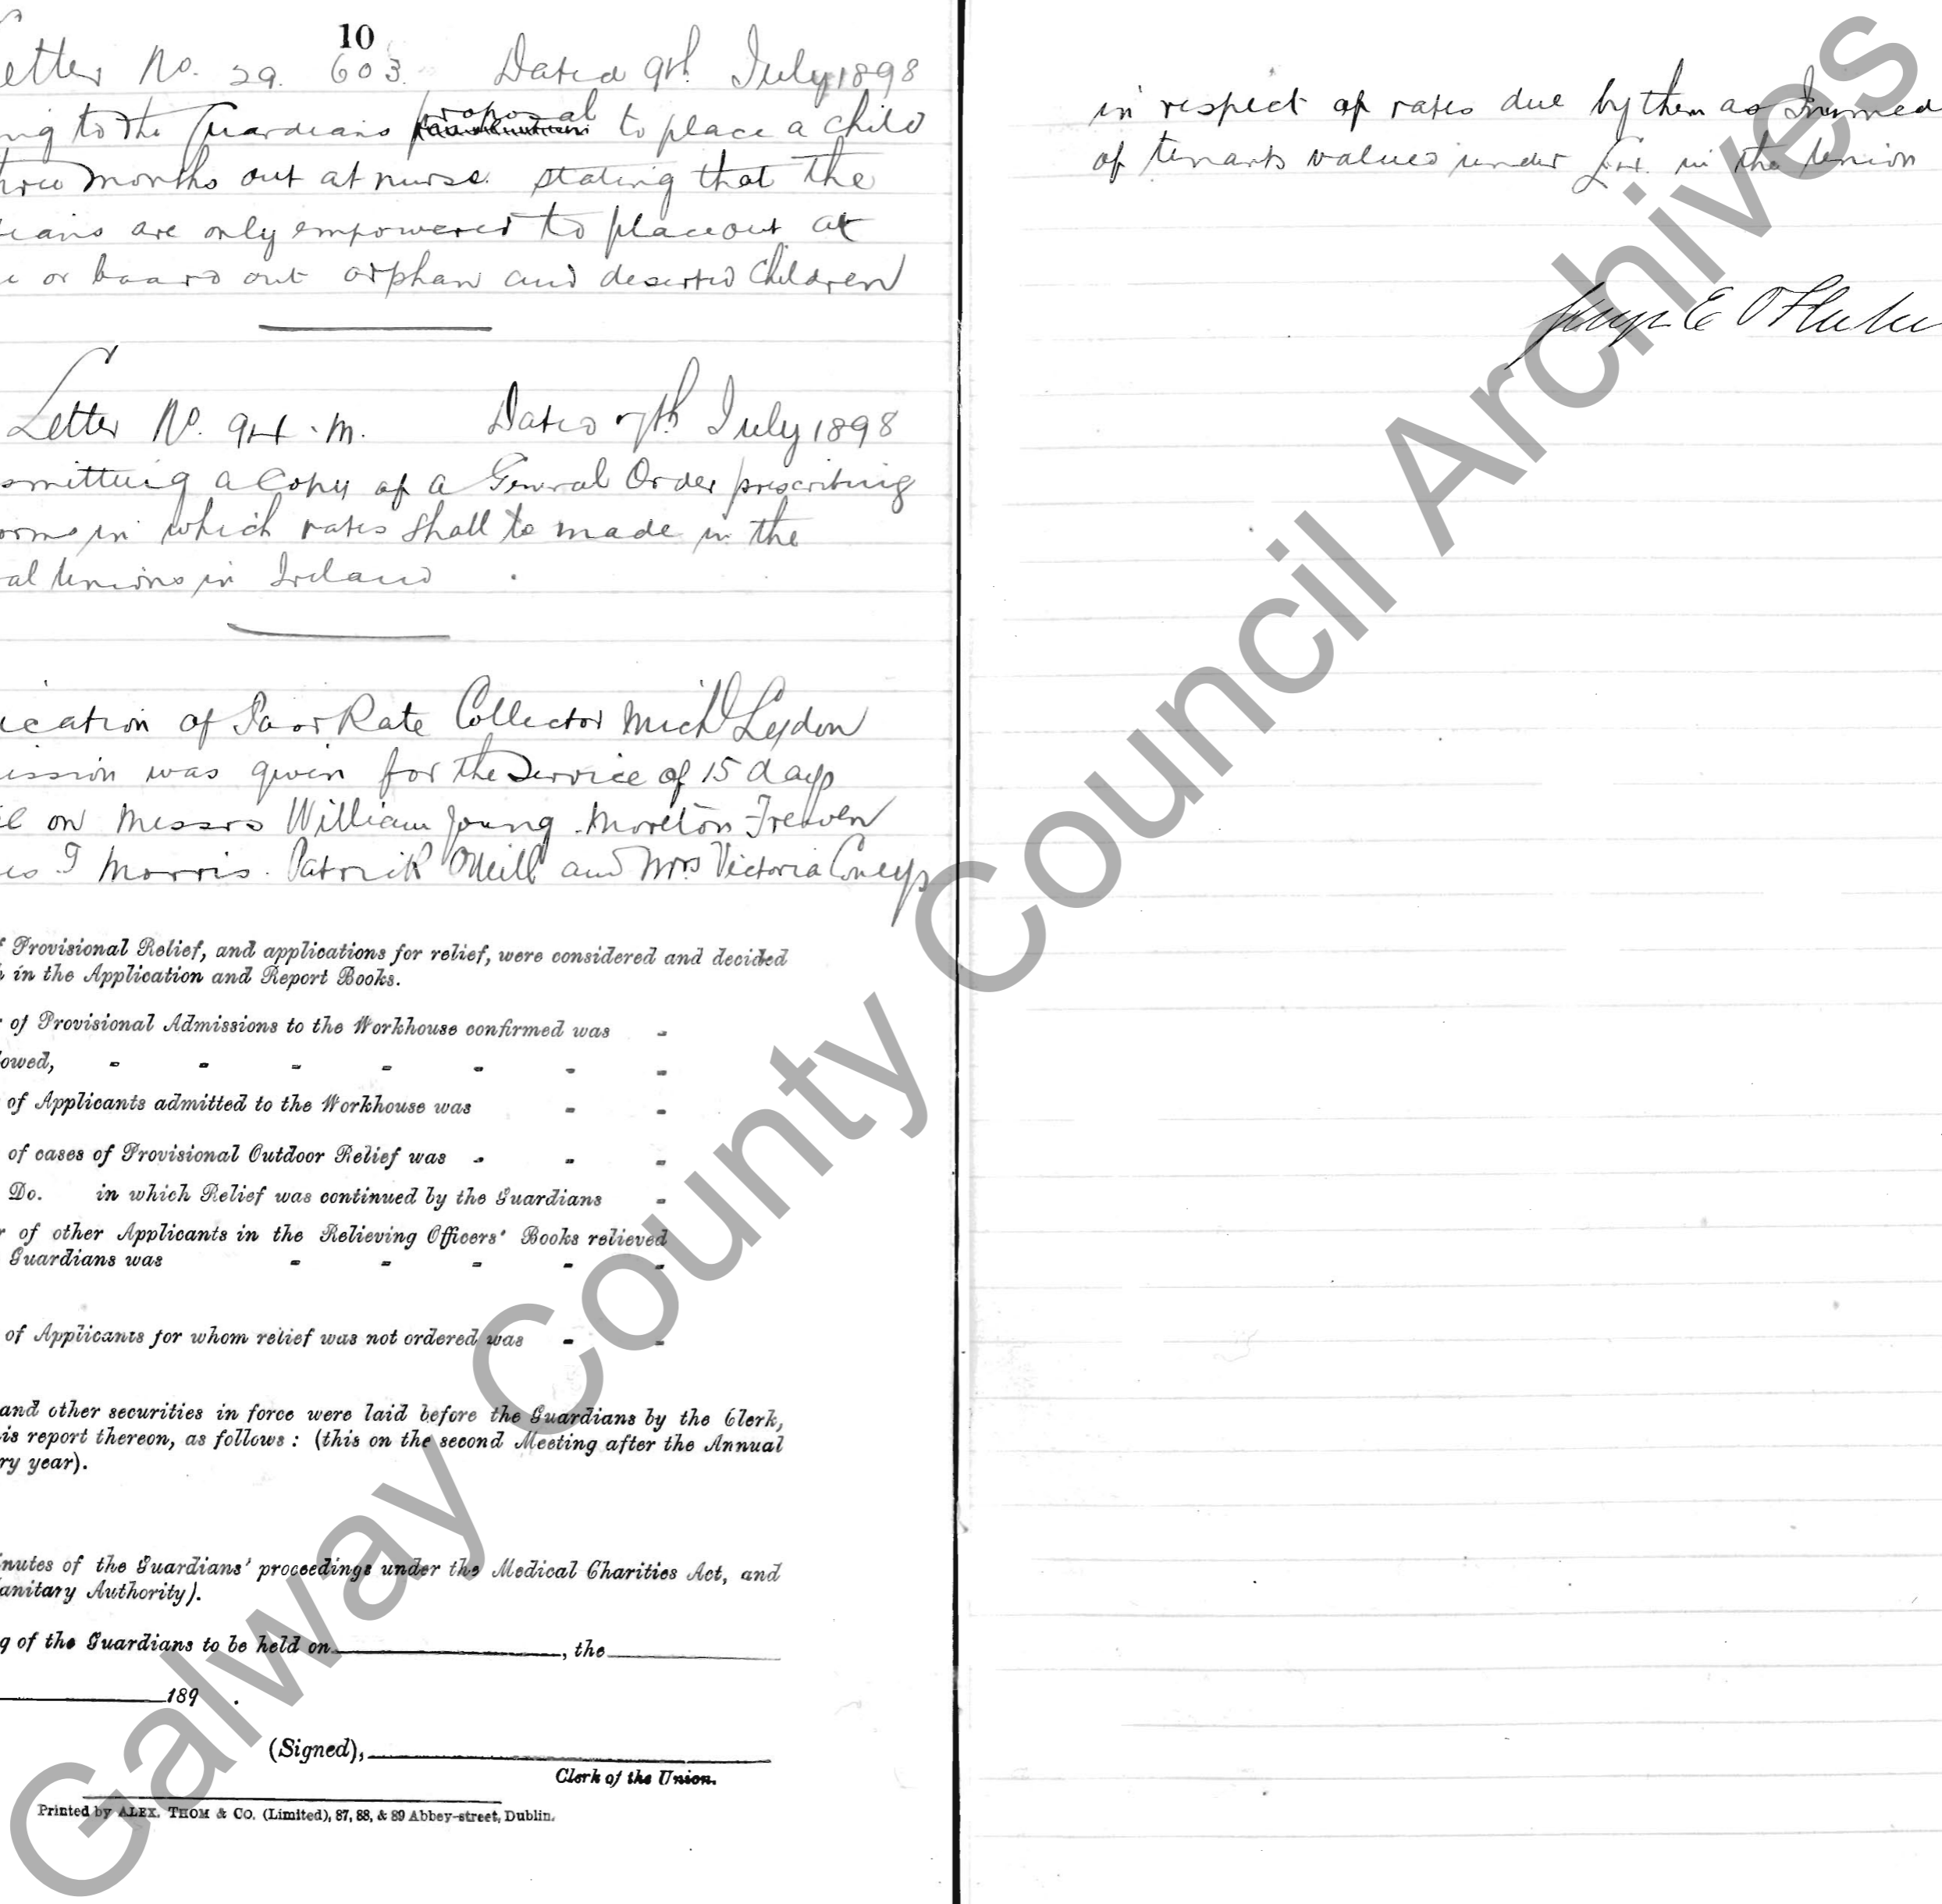 10
Letter No. 29. 603. Dated 9th July 1898
ng to the Guardians proposal to place a child
three months out at nurse. stating that the
ians are only empowered to place out at
e or board out orphan and deserted children
Letter No. 94. M. Dated 7th July 1898
smitting a Copy of a General Order prescribing
orms in which rates shall be made in the
al Unions in Ireland
ication of Poor Rate Collector Michl Lydon
ission was given for the Service of 15 days
on Messrs William Young. Moreton Frewen
T Morris. Patrick O'Neill and Mrs Victoria Coneys
f Provisional Relief, and applications for relief, were considered and decided
h in the Application and Report Books.
r of Provisional Admissions to the Workhouse confirmed was - 
lowed, - - - - - - -
of Applicants admitted to the Workhouse was - -
of cases of Provisional Outdoor Relief was - - -
Do. in which Relief was continued by the Guardians -
r of other Applicants in the Relieving Officers' Books relieved
Guardians was - - - - -
of Applicants for whom relief was not ordered was - -
and other securities in force were laid before the Guardians by the Clerk,
is report thereon, as follows: (this on the second Meeting after the Annual
ry year).
inutes of the Guardians' proceedings under the Medical Charities Act, and
anitary Authority).
g of the Guardians to be held on , the
189 .
(Signed),
Clerk of the Union.
Printed by ALEX. THOM & CO. (Limited), 87, 88, & 89 Abbey-street, Dublin.
in respect of rates due by them as Immed
of tenants valued under £4. in the Union
Galway County Council Archives